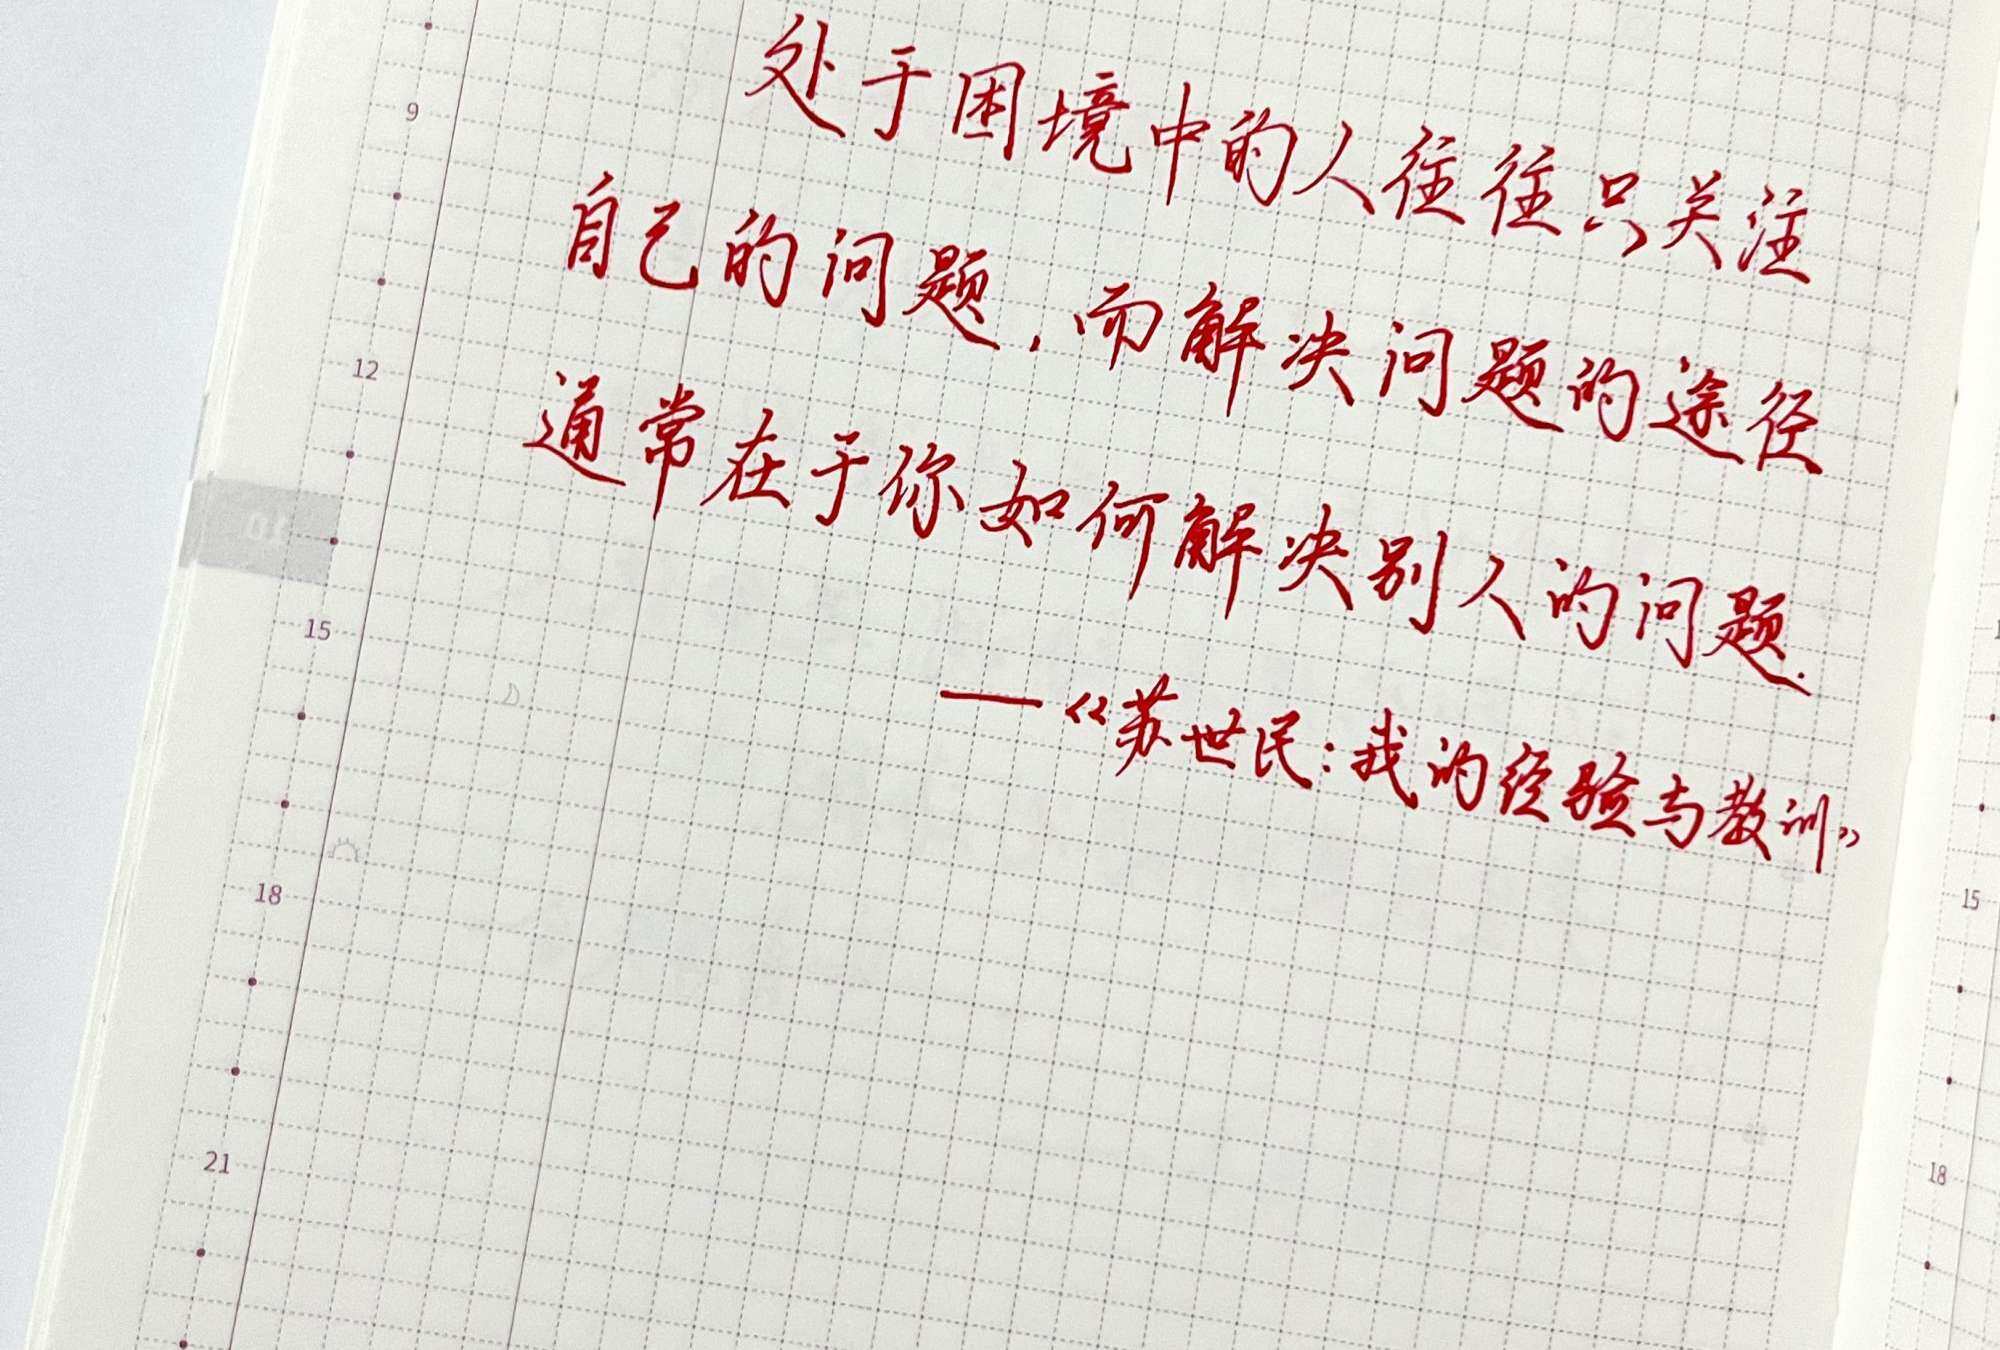 处于困境中的人往往只关注
自己的问题，而解决问题的途径
通常在于你如何解决别人的问题.
——《苏世民：我的经验与教训》
9
12
10
15
18
21
15
18